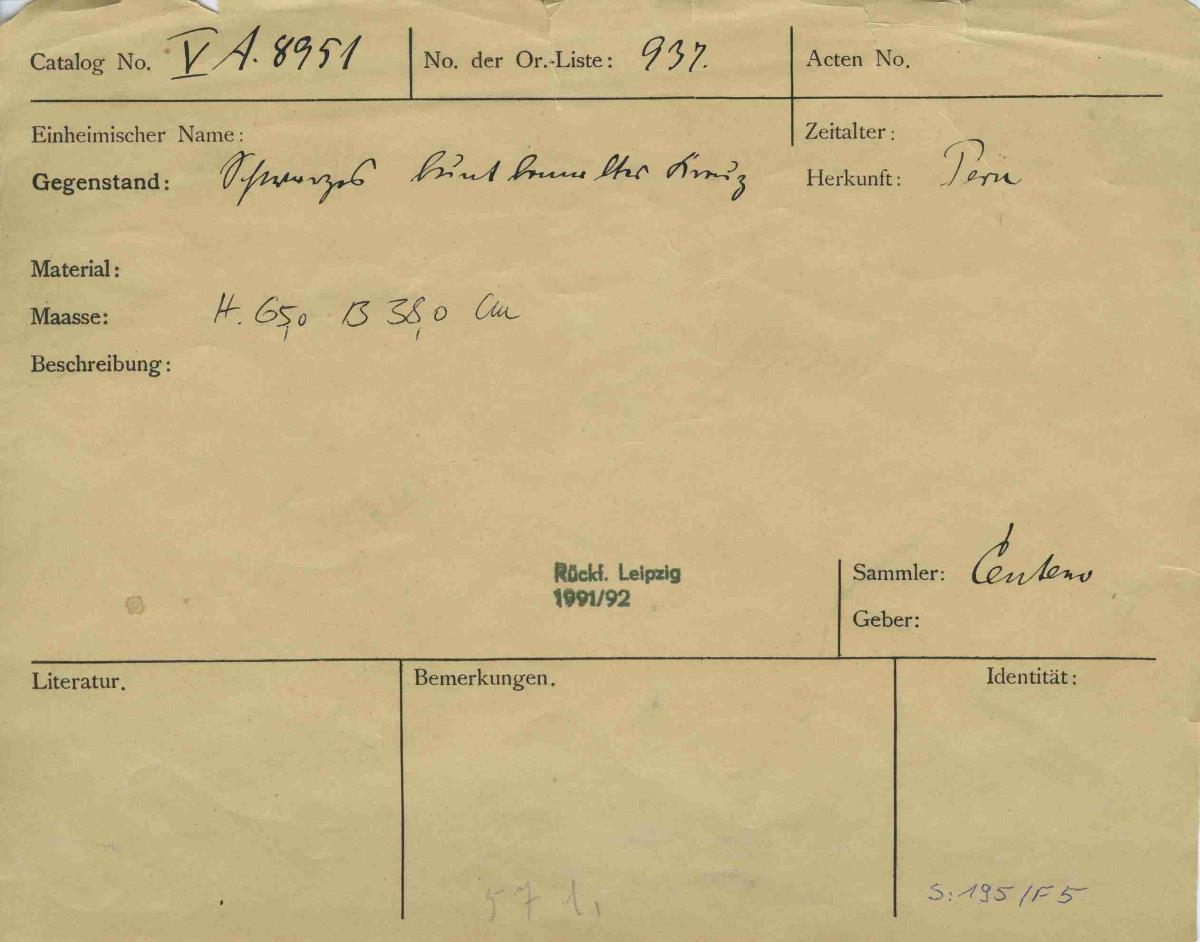 Catalog No. V A. 8951 No. der Or.-Liste: 937. Acten No.
Einheimischer Name: Zeitalter:
Gegenstand: Schwarzes bunt bemaltes Kreuz Herkunft: Peru
Material:
Maasse: H. 65,0 B 38,0 cm
Beschreibung:
Rückf. Leipzig
1991/92
Sammler: Centeno
Geber:
Literatur. Bemerkungen. Identität:
S:195/F5